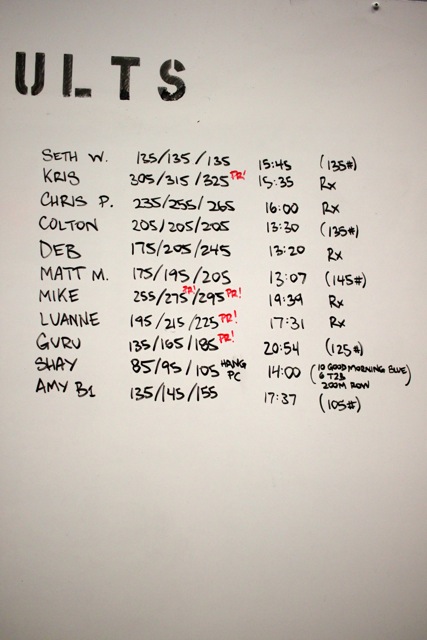 ULTS
SETH W. 135/135/135 15:45 (135#)
KRIS 305/315/325 PR! 15:35 Rx
CHRIS P. 235/255/265 16:00 Rx
COLTON 205/205/205 13:30 (135#)
DEB 175/205/245 13:20 Rx
MATT M. 175/195/205 13:07 (145#)
MIKE 255/275 PR!/295 PR! 19:39 Rx
LUANNE 195/215/225 PR! 17:31 Rx
GURU 135/165/185 PR! 20:54 (125#)
SHAY 85/95/105 HANG PC 14:00 (10 GOOD MORNING BLUE) 6 T2B 200M ROW
AMY B1 135/145/155 17:37 (105#)